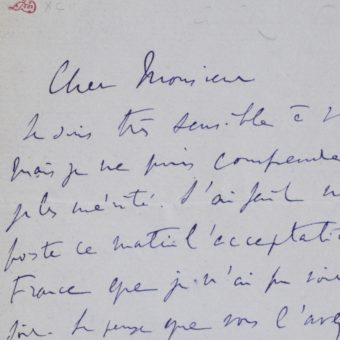 Cher Monsieur
Je suis très sensible à
mais je ne puis comprendre
je les mérité. J'ai fait
poste ce matin l'acceptation
France que je n'ai pu
soir. Je pense que vous l'avez